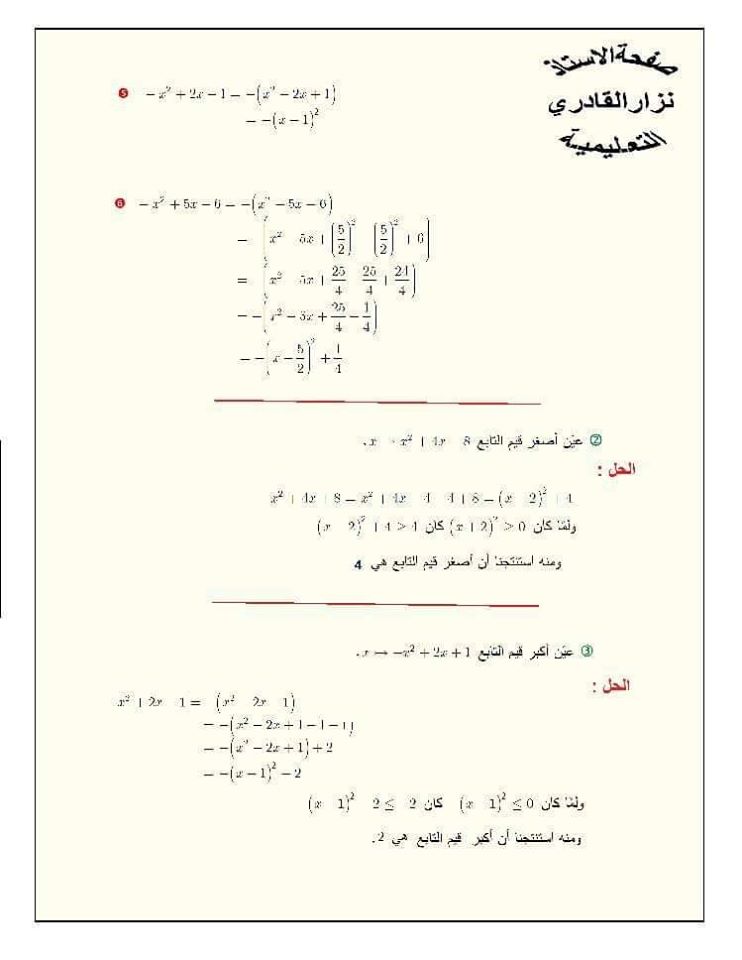 صفحة الاستاذ
نزار القادري
التعليمية
❺ −x² + 2x − 1 = −(x² − 2x + 1)
= −(x − 1)²
❻ −x² + 5x − 6 = −(x² − 5x − 6)
x² 5x + (5/2)² (5/2)² + 6
x² 5x + 25/4 25/4 + 24/4
= −(x² − 5x + 25/4 − 1/4)
= −(x − 5/2)² + 1/4
② عيّن أصغر قيم التابع x x² + 4x 8.
الحل :
x² + 4x + 8 = x² + 4x 4 4 + 8 = (x 2)² + 4
ولمّا كان (x + 2)² ≥ 0 كان (x 2)² + 4 ≥ 4
ومنه استنتجنا أن أصغر قيم التابع هي 4
③ عيّن أكبر قيم التابع x → −x² + 2x + 1.
الحل :
x² + 2x 1 = (x² 2x 1)
= −(x² − 2x + 1 − 1 − 1)
= −(x² − 2x + 1) + 2
= −(x − 1)² − 2
ولمّا كان (x 1)² ≤ 0 كان (x 1)² 2 ≤ 2
ومنه استنتجنا أن أكبر قيم التابع هي 2.